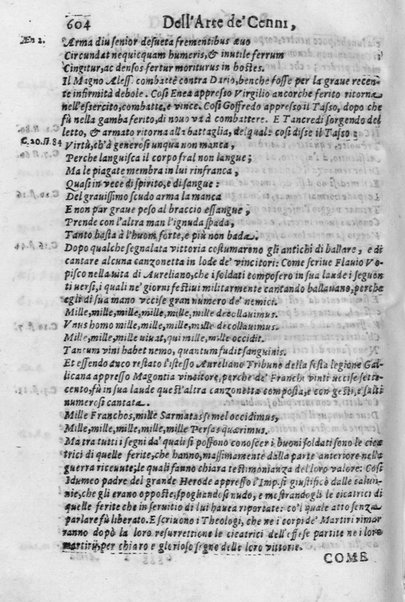 604 Dell'Arte de' Cenni,
Æn 2. Arma diu senior desueta trementibus æuo
Circundat nequicquam humeris, & inutile ferrum
Cingitur, ac densos fertur moriturus in hostes.
Il Magno Aless. combattè contra Dario, benche fosse per la graue recente
infirmità debole. Così Enea appresso Virgilio ancorche ferito ritorna
nell'essercito, combatte, e vince. Così Goffredo appresso il Tasso, dopo che
fù nella gamba ferito, di nouo và à combattere. E Tancredi sorgendo del
letto, & armato ritorna alla battaglia, del quale così disse il Tasso:
C. 20. st. 84 Virtù, ch'à generosi unqua non manca,
Perche languisca il corpo fral non langue;
Ma le piagate membra in lui rinfranca,
Quasi in vece di spirito, e di sangue:
Del grauissimo scudo arma la manca
E non par graue peso al braccio essangue,
Prende con l'altra man l'ignuda spada,
Tanto basta à l'huom forte, e più non bada.
Dopo qualche segnalata vittoria costumareno gli antichi di ballare, e di
cantare alcuna canzonetta in lode de' vincitori: Come scriue Flauio Vopisco
nella vita di Aureliano, che i soldati composero in sua laude i seguenti
versi, i quali ne' giorni festiui militarmente cantando ballauano, perche
egli di sua mano vccise gran numero de' nemici.
Mille, mille, mille, mille, mille decollauimus.
Vnus homo mille, mille, mille, mille decollauimus.
Mille, mille, mille uiuat, qui mille occidit.
Tantum vini habet nemo, quantum fudit sanguinis.
Et essendo auco restato l'istesso Aureliano Tribuno della sesta legione Gallicana
appresso Magontia vincitore, perche de' Franchi vinti uccise settecento,
fù in sua laude quest'altra canzonetta composta, e con gesti, e salti
numerosi cantata.
Mille Franchos, mille Sarmatas semel occidimus,
Mille, mille, mille, mille, mille Persas quærimus.
Ma tra tutti i segni da' quali si possono conoscere i buoni soldati sono le cicatrici
di quelle ferite, che hanno, massimamente dalla parte anteriore nella
guerra riceuute, le quali fanno chiara testimonianza del loro valore: Così
Idumeo padre del grande Herode appresso l'Imp. si giustificò dalle calunnie,
che gli erano opposte, spogliandosi nudo, e mostrandogli le cicatrici di
quelle ferite che in seruitio di lui hauea riportate: co'l quale atto senza
parlare fù liberato. E scriuono i Theologi, che ne i corpi de' Martiri rimarranno
dopò la loro resurrettione le cicatrici dell'offese patite ne i loro
martirij, per chiaro e glorioso segno delle loro vittorie.
COME